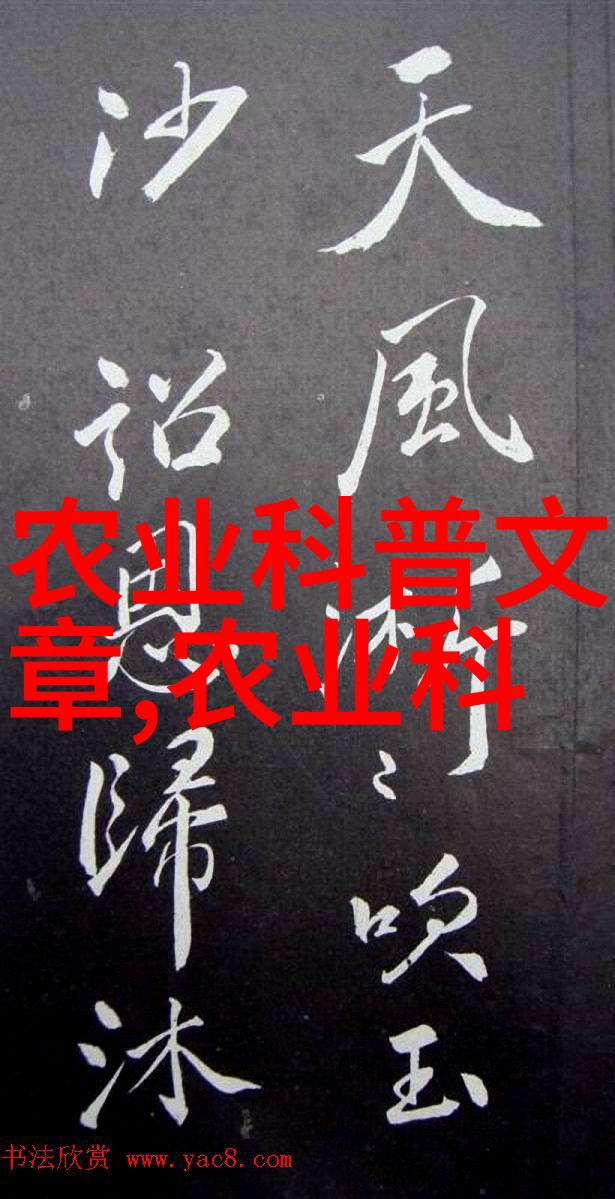 天風淅〻吹玉
沙詔恩歸沐
农业科普文
章,农业科
书法欣赏 www.yac8.com